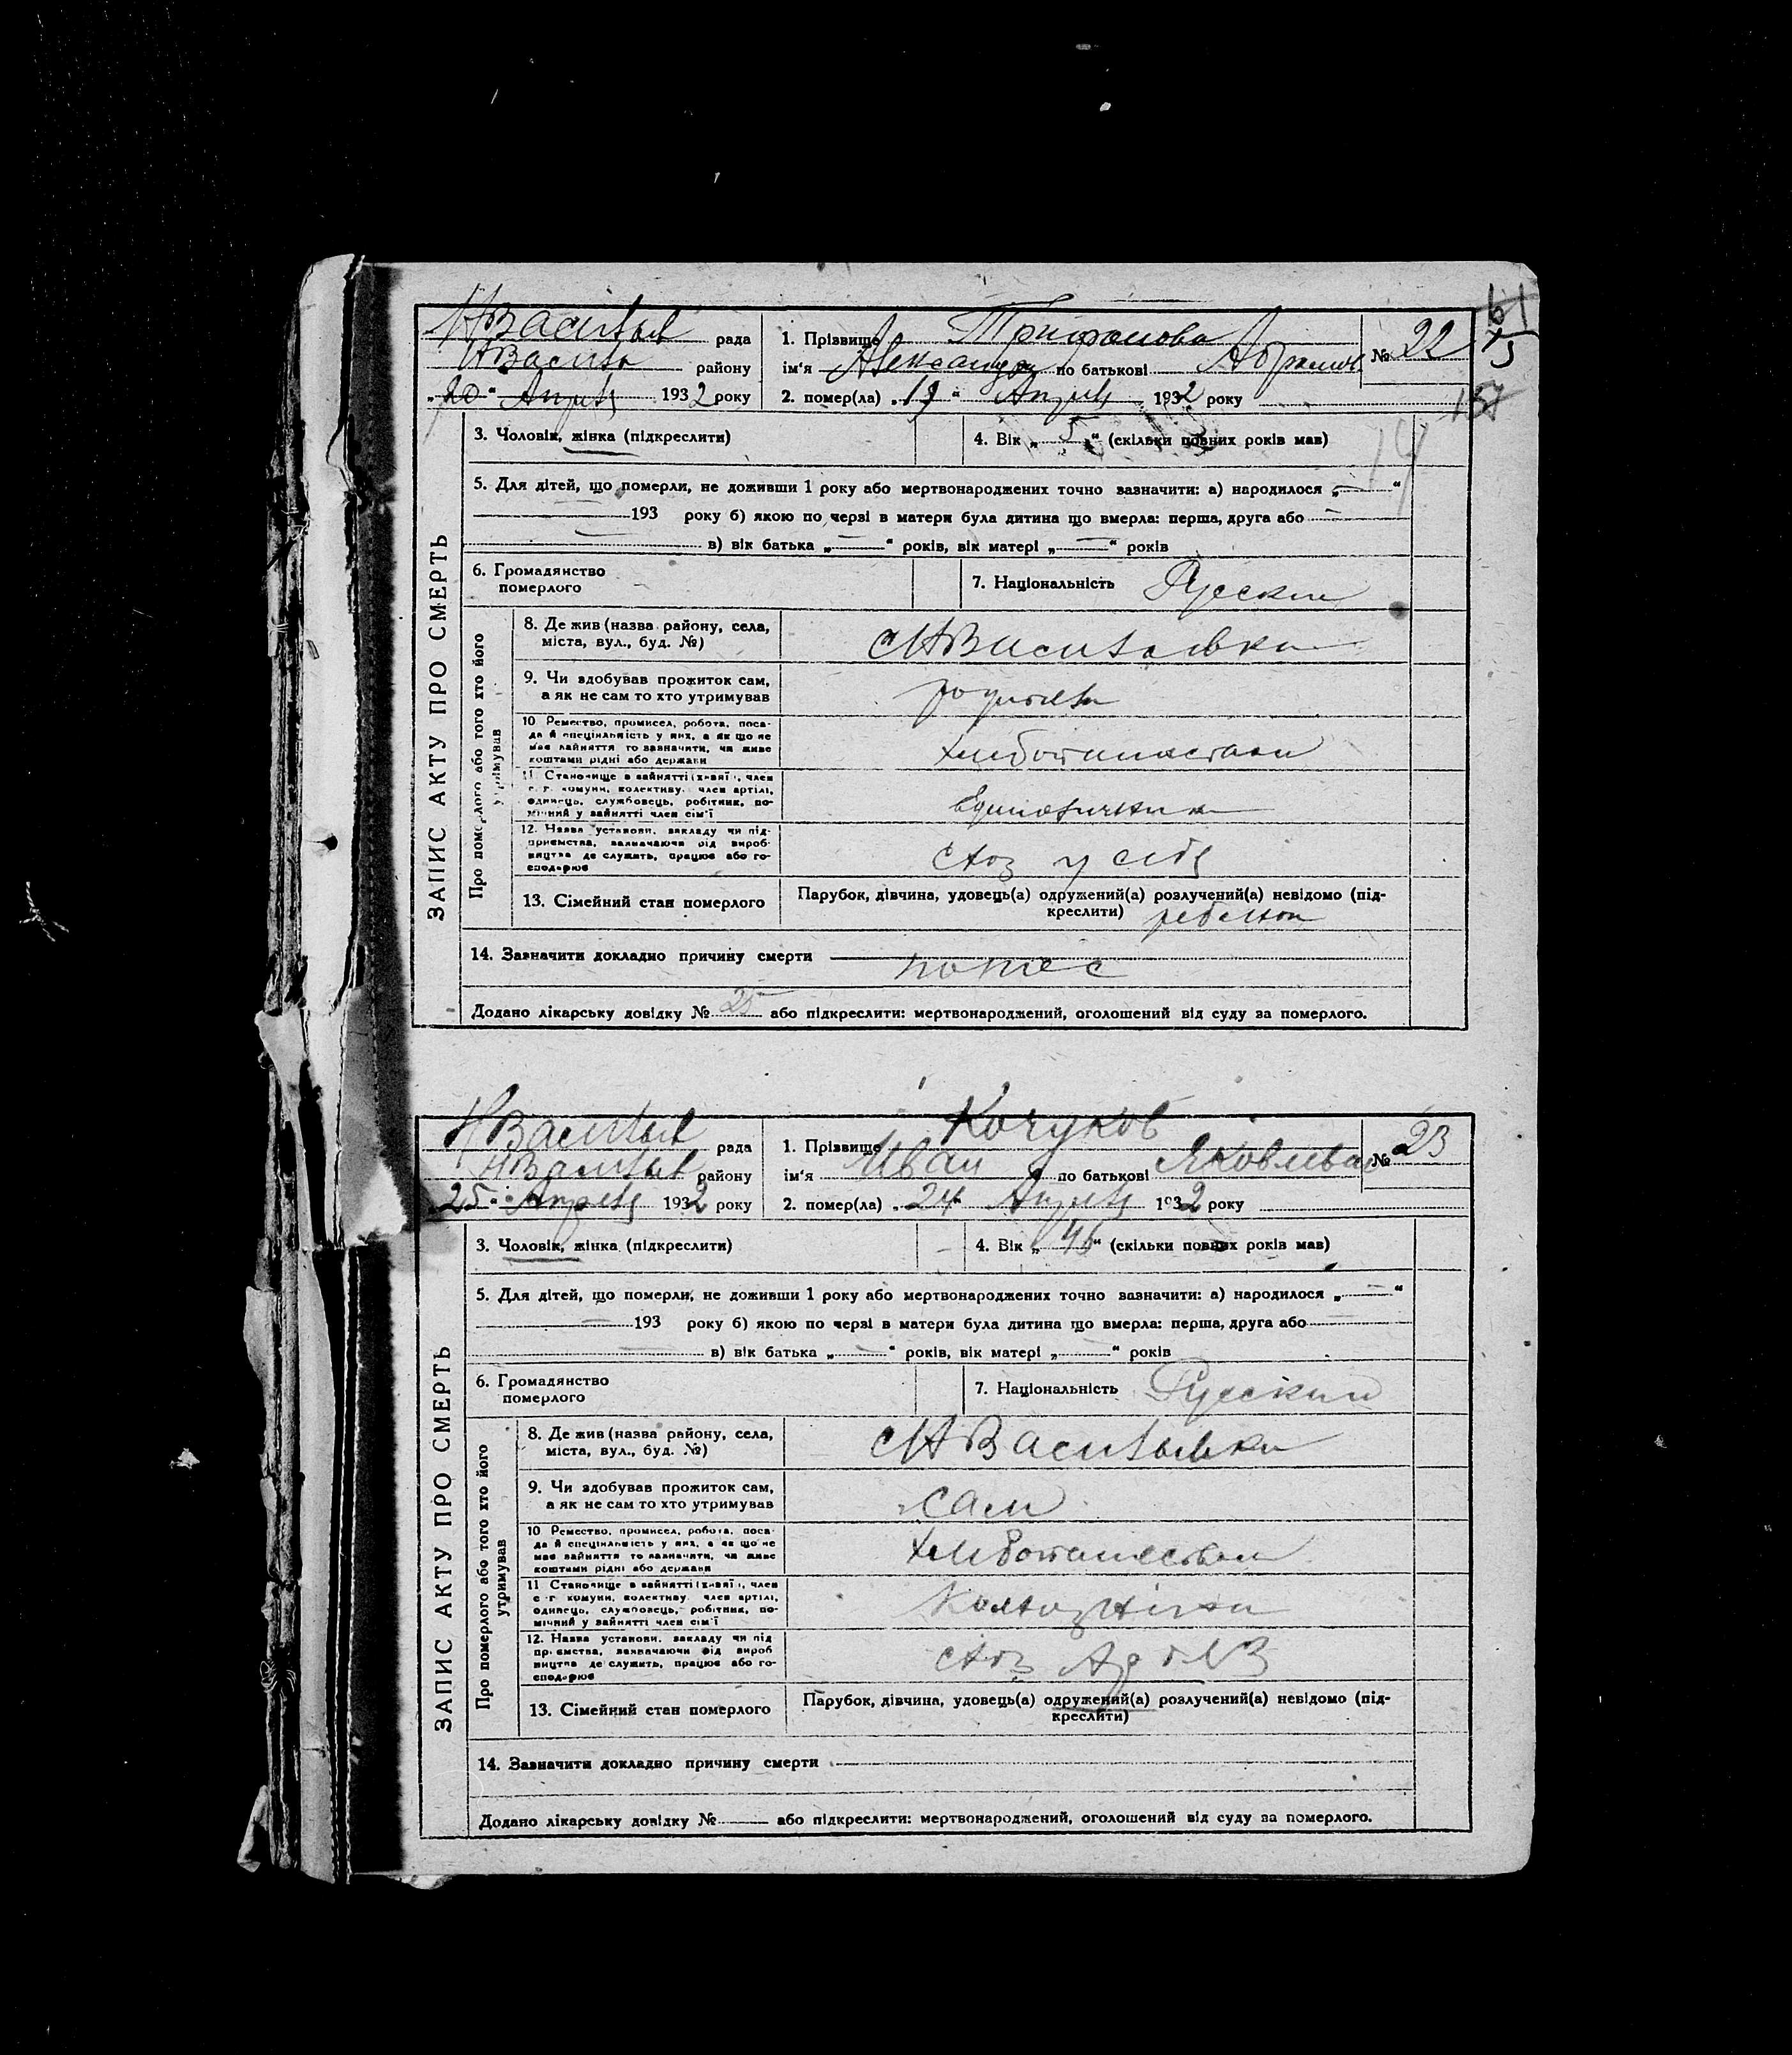 61
75
157
НВасильев рада
НВасиль району
„20“ Апрель 1932 року
1. Прізвище Трифонова
ім'я Александра по батькові Абрамов
№ 22
2. помер(ла) „19“ Апрель 1932 року
ЗАПИС АКТУ ПРО СМЕРТЬ
3. Чоловік, жінка (підкреслити)
4. Вік „5“ (скільки повних років мав)
5. Для дітей, що померли, не доживши 1 року або мертвонароджених точно зазначити: а) народилося „—“
193 року б) якою по черзі в матери була дитина що вмерла: перша, друга або
в) вік батька „—“ років, вік матері „—“ років
6. Громадянство
померлого
7. Національність Русский
Про померлого або того хто його
утримував
8. Де жив (назва району, села,
міста, вул., буд. №)
с НВасильевка
9. Чи здобував прожиток сам,
а як не сам то хто утримував
родители
10 Ремество, промисел, робота, поса-
да й спеціяльність у них, а як що не
має зайняття то зазначити, чи живе
коштами рідні або держави
хлебопашеством
11. Становище в зайнятті (хазяїн, член
с.-г. комуни, колективу, член артілі,
одинець, службовець, робітник, по-
мічний у зайнятті член сім'ї
Единоличник
12. Назва установи, закладу чи під-
приємства, зазначаючи рід вироб-
ництва де служить, працює або го-
сподарює
схоз у себя
13. Сімейний стан померлого
Парубок, дівчина, удовець(а) одружений(а) розлучений(а) невідомо (під-
креслити) ребенок
14. Зазначити докладно причину смерти
понос
Додано лікарську довідку № 25 або підкреслити: мертвонароджений, оголошений від суду за померлого.
НВасильев рада
НВасильев району
„25“ Апрель 1932 року
1. Прізвище Кочуков
ім'я Иван по батькові Яковлева
№ 23
2. помер(ла) „24“ Апрель 1932 року
ЗАПИС АКТУ ПРО СМЕРТЬ
3. Чоловік, жінка (підкреслити)
4. Вік „46“ (скільки повних років мав)
5. Для дітей, що померли, не доживши 1 року або мертвонароджених точно зазначити: а) народилося „—“
193 року б) якою по черзі в матери була дитина що вмерла: перша, друга або
в) вік батька „—“ років, вік матері „—“ років
6. Громадянство
померлого
7. Національність Русский
Про померлого або того хто його
утримував
8. Де жив (назва району, села,
міста, вул., буд. №)
с НВасильевка
9. Чи здобував прожиток сам,
а як не сам то хто утримував
сам
10 Ремество, промисел, робота, поса-
да й спеціяльність у них, а як що не
має зайняття то зазначити, чи живе
коштами рідні або держави
хлебопашеством
11 Становище в зайнятті (хазяїн, член
с.-г. комуни, колективу, член артілі,
одинець, службовець, робітник, по-
мічний у зайнятті член сім'ї
Колхозник
12. Назва установи, закладу чи під
приємства, зазначаючи рід вироб
ництва де служить, працює або го-
сподарює
схоз
13. Сімейний стан померлого
Парубок, дівчина, удовець(а) одружений(а) розлучений(а) невідомо (під-
креслити)
14. Зазначити докладно причину смерти
Додано лікарську довідку № або підкреслити: мертвонароджений, оголошений від суду за померлого.